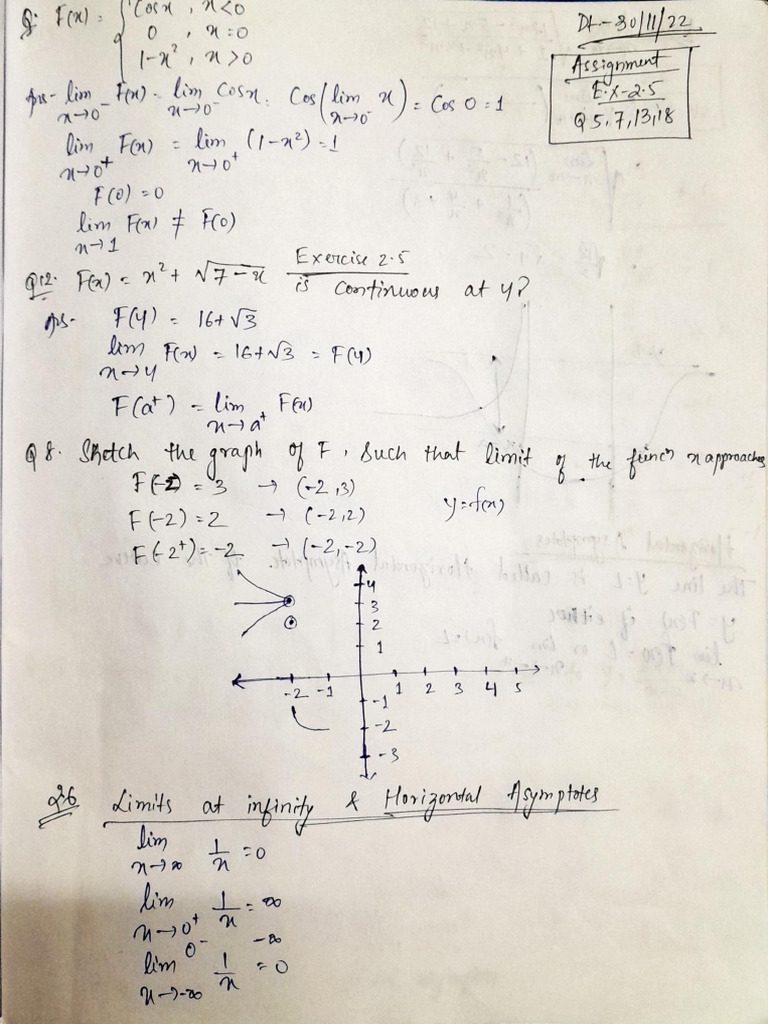 Dt-30/11/22
Assignment
E.X-2.5
Q 5,7,13,18
Q: F(x) = { Cosx , x<0
0 , x=0
1-x² , x>0
Ans- lim x→0⁻ F(x) = lim x→0⁻ Cosx. Cos(lim x→0⁻ x) = Cos 0 = 1
lim x→0⁺ F(x) = lim x→0⁺ (1-x²) = 1
F(0) = 0
lim x→1 F(x) ≠ F(0)
Exercise 2.5
Q12. F(x) = x² + √7-x is continuous at 4?
Ans- F(4) = 16+√3
lim x→4 F(x) = 16+√3 = F(4)
F(a⁺) = lim x→a⁺ F(x)
Q8. Sketch the graph of F, such that limit of the func'n x approaches
F(-2) = 3 → (-2,3)
F(-2) = 2 → (-2,2) y=f(x)
F(-2⁺) = -2 → (-2,-2)
4
3
2
1
-2 -1 1 2 3 4 5
-1
-2
-3
2.6 Limits at infinity & Horizontal Asymptotes
lim x→∞ 1/x = 0
lim x→0⁺ 1/x = ∞
0⁻ -∞
lim x→-∞ 1/x = 0